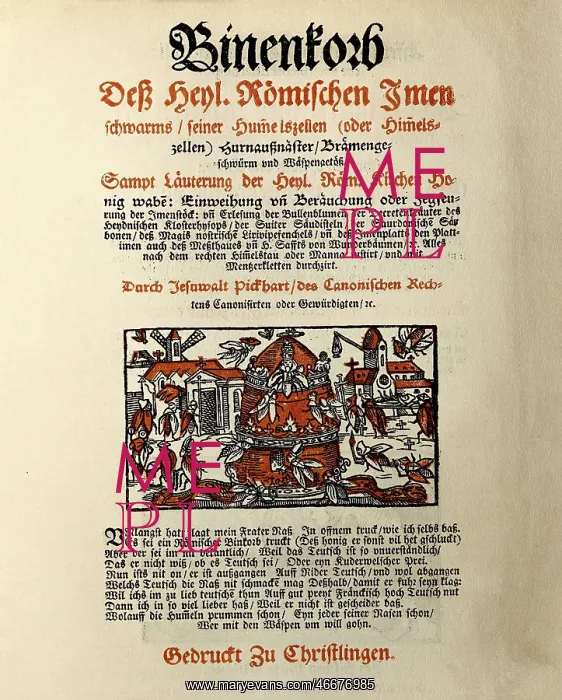 Binenkorb
Deß Heyl. Römischen Imen
schwarms / seiner Hum̃elszellen (oder Him̃els-
zellen) Hurnaußnäster / Brämenge-
schwürm vnd Wäspengetöß
Sampt Läuterung der Heyl. Röm. Kirchen Ho-
nig wabẽ: Einweihung vñ Beräuchung oder Fegfeu-
rung der Imenstöck: vñ Erlesung der Bullenblumen
Heydnischen Klosterhysops / der Suiter Säudisteln
bonen / deß Magis nostrische
imen auch deß Meßthaues vñ H. Saffts von Wunderbäumen / ꝛc. Alles
nach dem rechten Him̃elstau oder Manna
Mengerkletten durchzirt.
Durch Jesuwalt Pickhart / des Canonischen Rech-
tens Canonisirten oder Gewürdigten / ꝛc.
MEPL
MEPL
hat mein Frater Naß In offnem truck / wie ich selbs baß.
Es sei ein Römische Binkorb truckt (Deß honig er sonst vil het gschluckt)
Aber der sei im nit Weil das Teutsch ist so vnuerständlich /
Das er nicht wiß / ob es Teutsch sei / Oder eyn Kuderwelscher Prei.
Nun ists nit on / er ist außgangen Auff Nider Teutsch / vnd wol abgangen
Welchs Teutsch die Naß nit schmackt mag Deßhalb / damit er
Wil ichs im zu lieb teutschẽ thun Auff gut preyt Fränckisch hoch Teutsch nut
Dann ich in so viel lieber haß / Weil er nicht ist gescheider baß.
Wolauff die Hum̃eln prummen schon / Eyn jeder seiner Nasen schon /
Wer mit den Wäspen vm will gohn.
Gedruckt Zu Christlingen.
www.maryevans.com/46676985